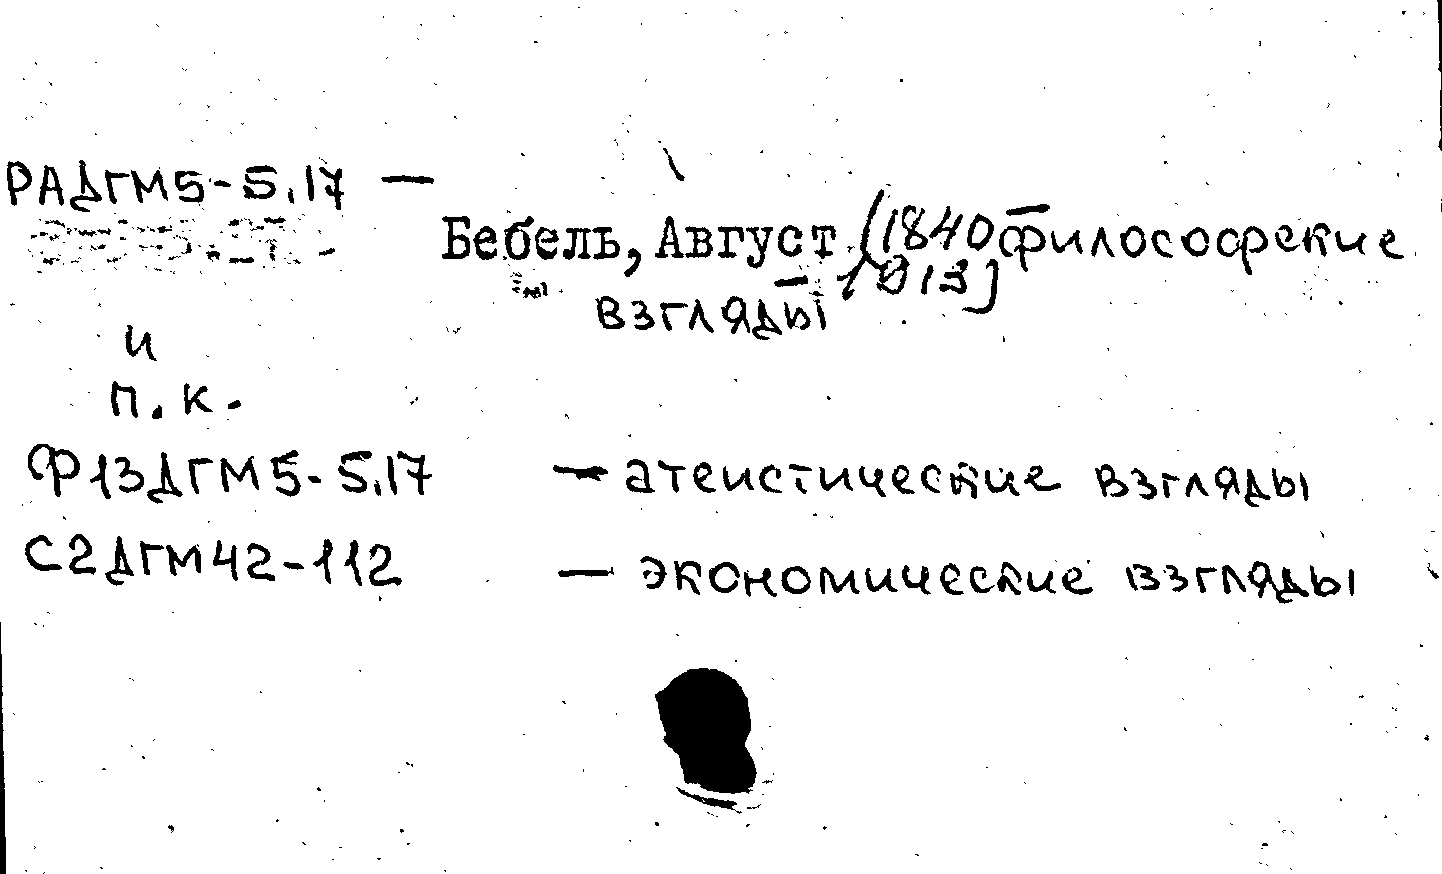 РАДГМ5-5.17 —
Бебель, Август (1840 – философские
1913)
взгляды
и
п.к.
Ф13ДГМ5-5.17 — атеистические взгляды
С2ДГМ42-112 — экономические взгляды